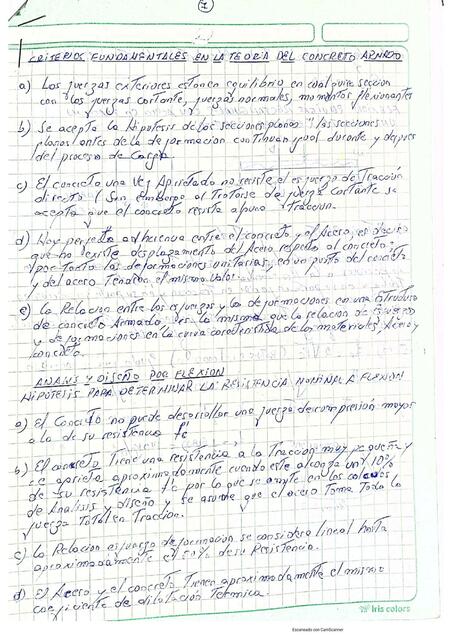 1
CRITERIOS FUNDAMENTALES EN LA TEORIA DEL CONCRETO ARMADO
a) Las fuerzas exteriores estan en equilibrio en cualquier sección
con las fuerzas cortante, fuerzas normales, momentos flexionantes
b) Se acepta la Hipotesis de las secciones planas "las secciones
planas antes de la deformacion continuan igual durante y despues
del proceso de Carga.
c) El concreto una vez Agrietado no resiste el esfuerzo de Tracción
directo (Sin embargo al Tratarse de fuerza Cortante se
acepta que el concreto resista alguna Traccion.
d) Hay perfecta adherencia entre el concreto y el Acero, es decir
que no existe desplazamiento del Acero respecto al concreto,
y por Tanto las deformaciones unitarias, en un punto del concreto
y del acero Tendran el mismo Valor.
e) La Relacion entre los esfuerzos y las deformaciones en una estructura
de concreto Armado, es la misma que la relacion de esfuerzo
y deformaciones en la curva caracteristica de los materiales, Acero y
concreto.
ANALISIS Y DISEÑO POR FLEXION
HIPOTESIS PARA DETERMINAR LA RESISTENCIA NOMINAL A FLEXION
a) El Concreto no puede desarrollar una fuerza de compresión mayor
a la de su resistencia f'c
b) El concreto Tiene una resistencia a la Tracción muy pequeña y
se agrieta aproximadamente cuando este alcanza un 10%
de su resistencia f'c por lo que se omite en los calculos
de Analisis y diseño y se asume que el acero Toma Toda la
fuerza Total en Traccion.
c) La Relacion esfuerzo deformacion se considera lineal hasta
aproximadamente el 50% de su Resistencia.
d) El Acero y el concreto Tienen aproximadamente el mismo
coeficiente de dilatación Termica.
iris colors
Escaneado con CamScanner